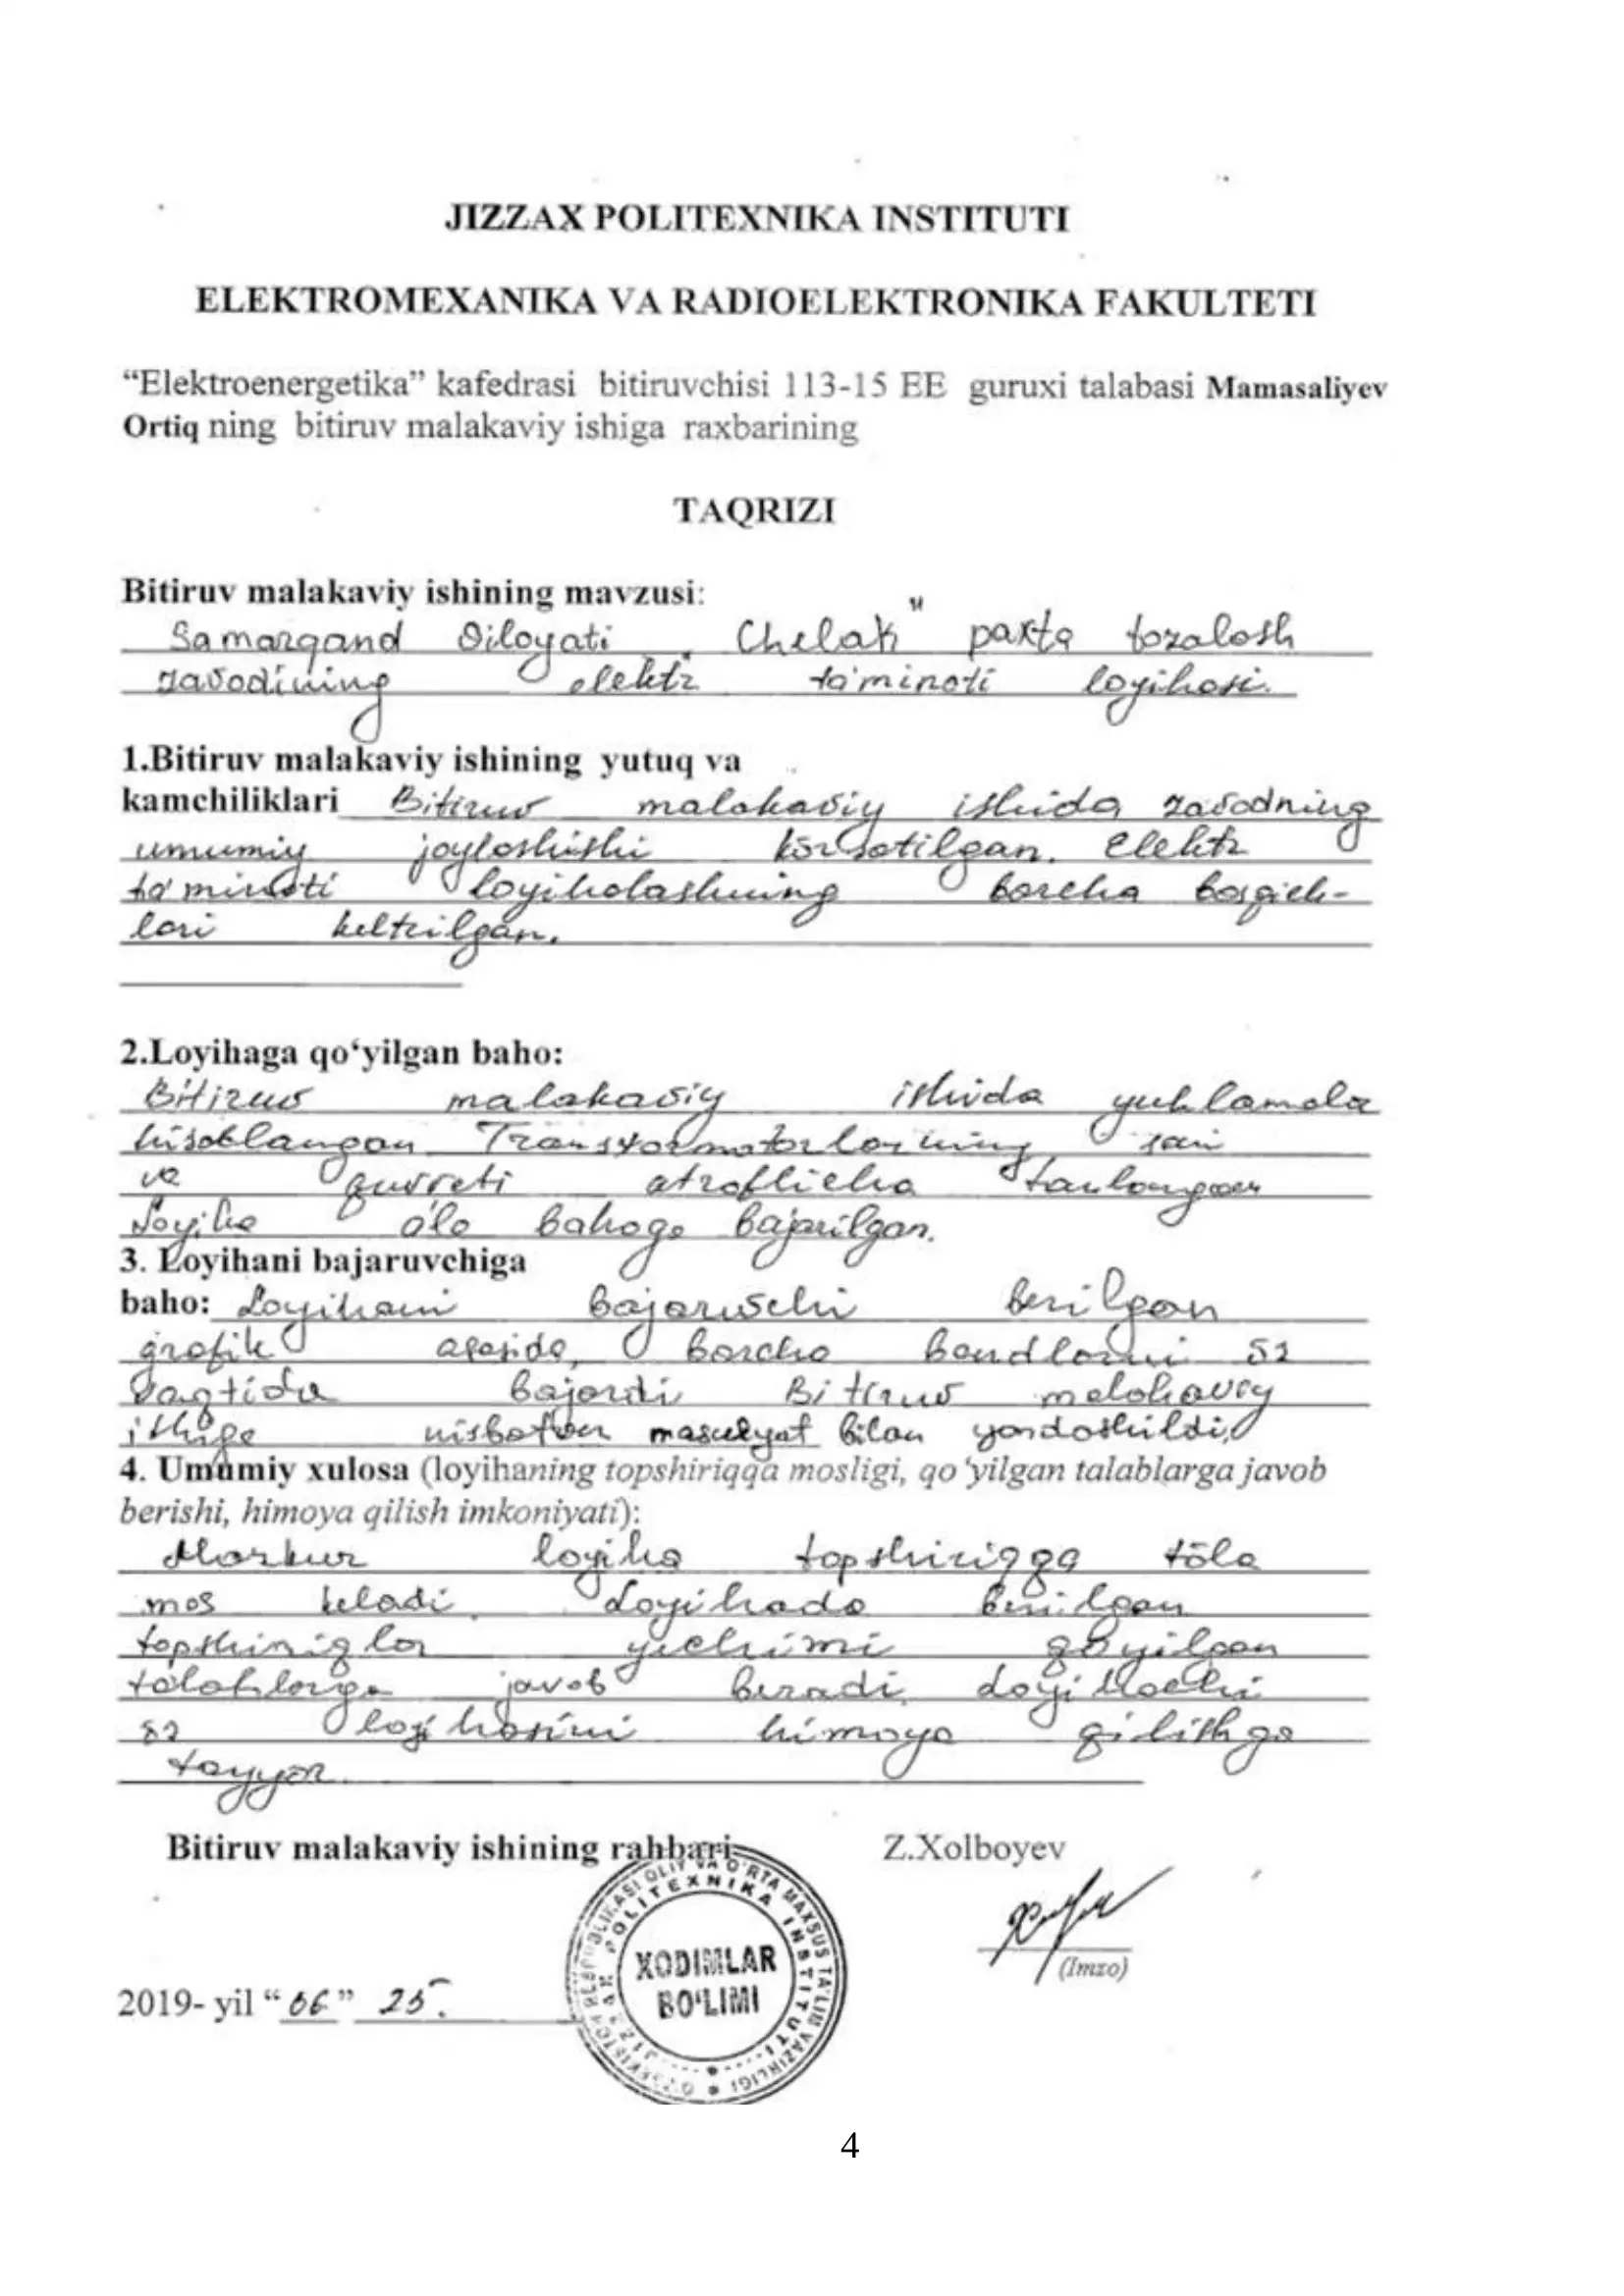 JIZZAX POLITEXNIKA INSTITUTI
ELEKTROMEXANIKA VA RADIOELEKTRONIKA FAKULTETI
“Elektroenergetika” kafedrasi bitiruvchisi 113-15 EE guruxi talabasi Mamasaliyev
Ortiq ning bitiruv malakaviy ishiga raxbarining
TAQRIZI
Bitiruv malakaviy ishining mavzusi:
Samarqand Viloyati „Chelak" paxta tozalash
zavodining elektr ta'minoti loyihasi.
1.Bitiruv malakaviy ishining yutuq va
kamchiliklari Bitiruv malakaviy ishida zavodning
umumiy joylashishi körsatilgan. Elektr
ta'minoti loyihalashning barcha bosqich-
lari keltrilgan.
2.Loyihaga qo‘yilgan baho:
Bitiruv malakaviy ishida yuklamala
hisoblangan Transformatorlarning sani
va quvvati atroflicha tanlangan
Loyiha a'lo bahoga bajarilgan.
3. Loyihani bajaruvchiga
baho: Loyihani bajaruvchi berilgan
grafik asosida, barcha bandlarni öz
vaqtida bajardi Bitiruv malakaviy
ishiga nisbatan masulyat bilan yondoshildi,
4. Umumiy xulosa (loyihaning topshiriqqa mosligi, qo‘yilgan talablarga javob
berishi, himoya qilish imkoniyati):
Mazkur loyiha topshiriqqa töla
mos keladi. Loyihada berilgan
topshiriqlar yechimi qöyilgan
talablarga javob beradi. Loyihachi
öz loyihasini himoya qilishga
tayyor.
Bitiruv malakaviy ishining rahbari Z.Xolboyev
(Imzo)
2019- yil “06” 25.
XODIMLAR
BO‘LIMI
4